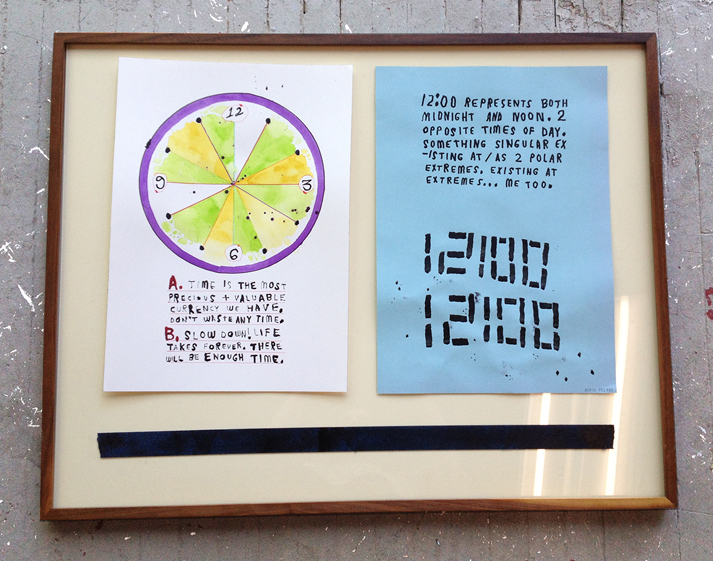 12
3
6
9
A. TIME IS THE MOST
PRECIOUS + VALUABLE
CURRENCY WE HAVE,
DON'T WASTE ANY TIME.
B. SLOW DOWN! LIFE
TAKES FOREVER. THERE
WILL BE ENOUGH TIME.
12:00 REPRESENTS BOTH
MIDNIGHT AND NOON. 2
OPPOSITE TIMES OF DAY.
SOMETHING SINGULAR EX
-ISTING AT/AS 2 POLAR
EXTREMES. EXISTING AT
EXTREMES... ME TOO.
12:00
12:00